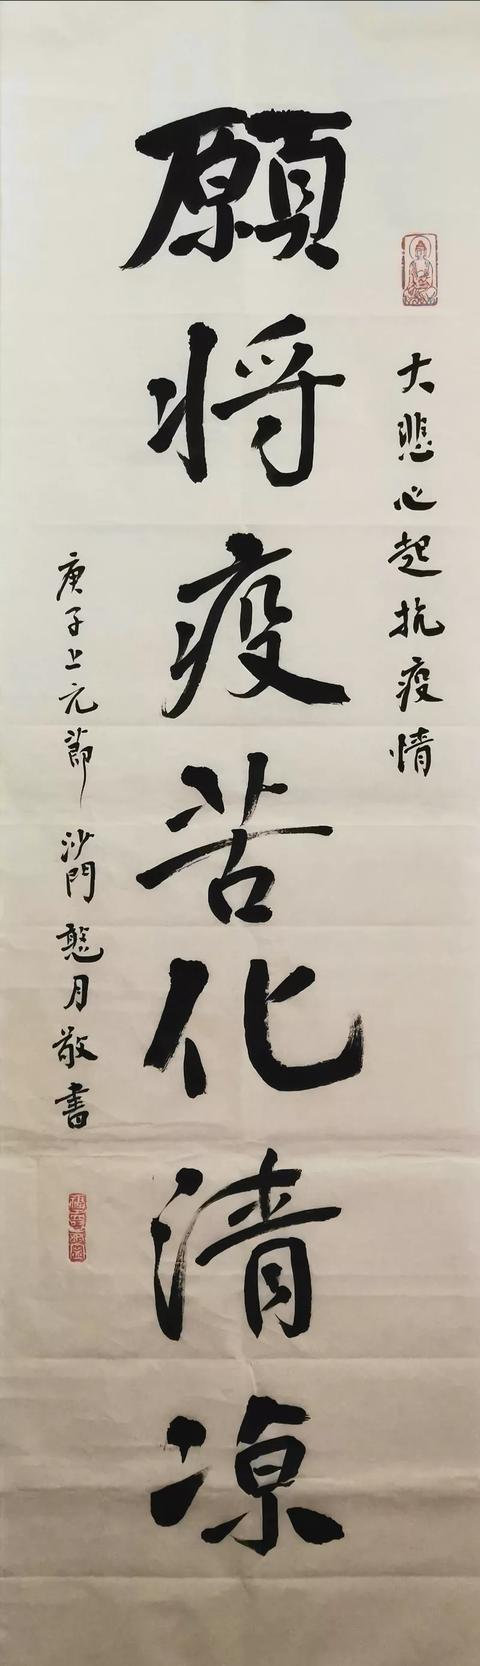 大悲心起抗疫情
願将疫苦化清凉
庚子上元節 沙門憨月敬書